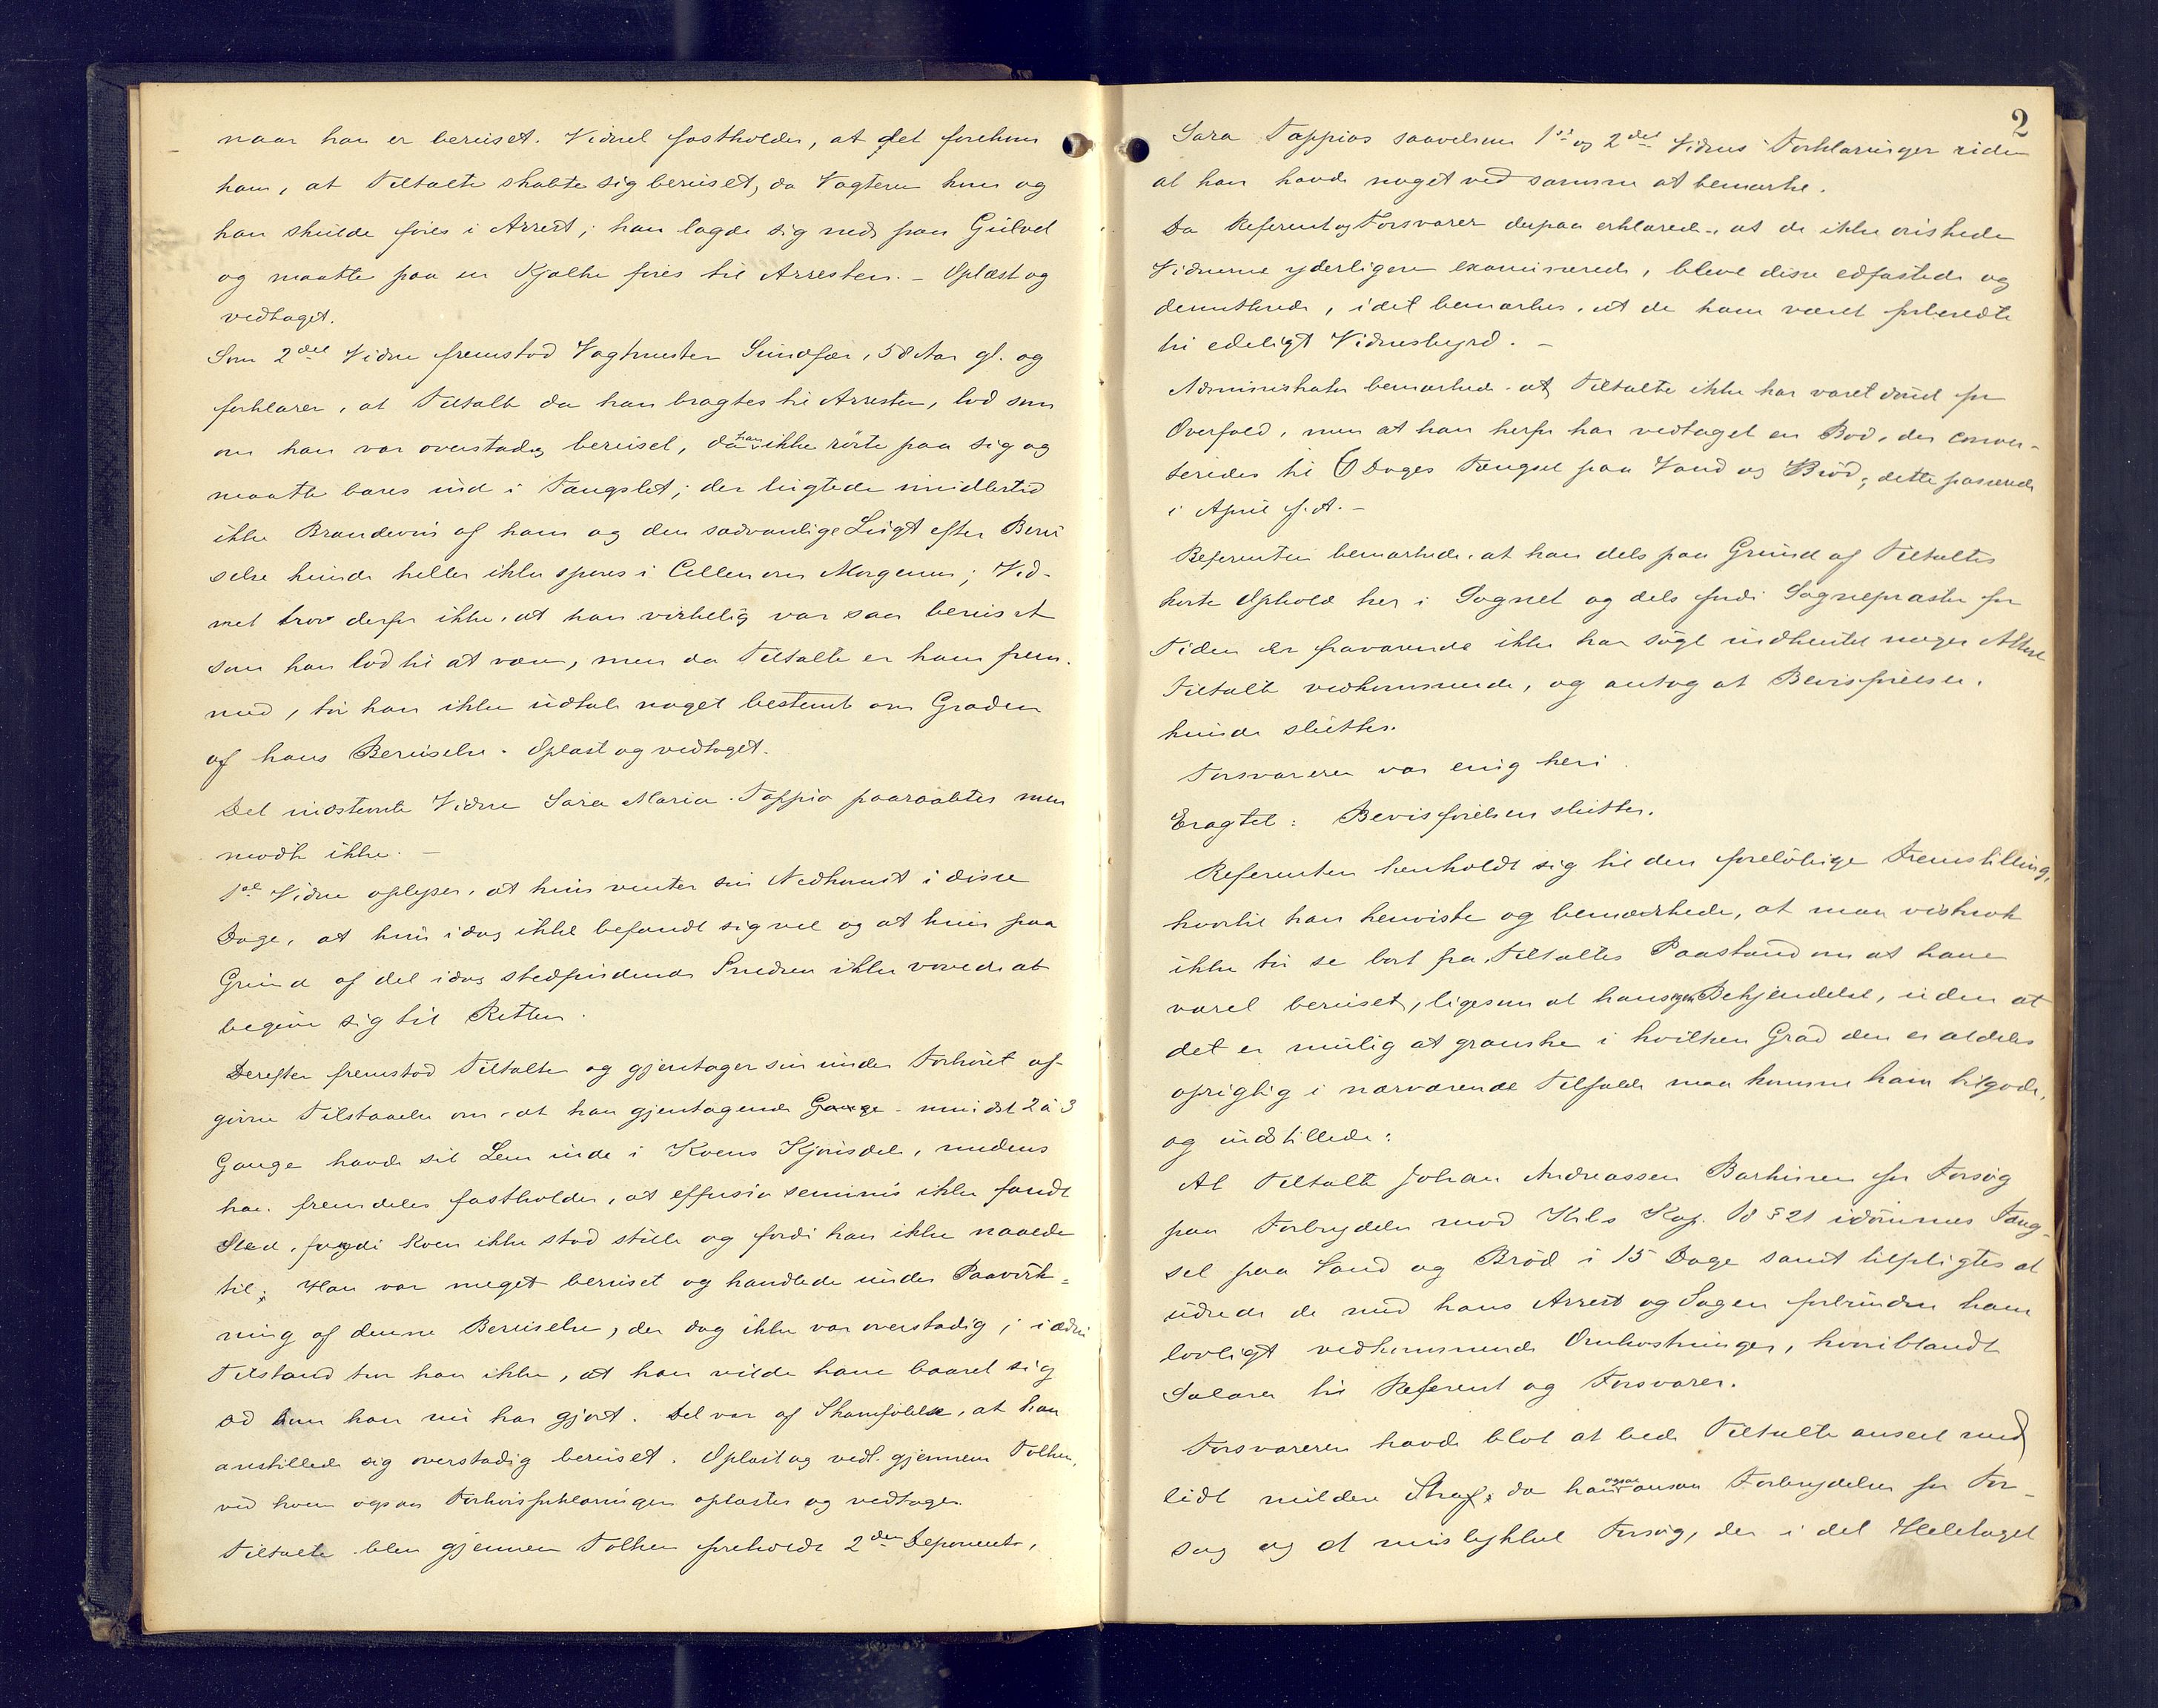 naar han er beruset. Vidnet fastholder, at det forekom
ham, at Tiltalte skabte sig beruset, da Vagteren kom og
han skulde føres i Arrest; han lagde sig ned paa Gulvet
og maatte paa en Kjælke føres til Arresten. – Oplæst og
vedtaget.
Som 2det Vidne fremstod Vagtmester Sundfær, 58 Aar gl. og
forklarer, at Tiltalte da han bragtes til Arresten, lod som
om han var overstadig beruset, da han ikke rørte paa sig og
maatte bæres ind i Fængslet; der lugtede imidlertid
ikke Brændevin af ham og den sædvanlige Lugt efter Beru
selse kunde heller ikke spores i Cellen om Morgenen; Vid-
net tror derfor ikke, at han virkelig var saa beruset
som han lod til at være, men da Tiltalte er ham frem-
med, tør han ikke udtale noget bestemt om Graden
af hans Beruselse. Oplæst og vedtaget.
Det indstevnte Vidne Sara Maria Tappio paaraabtes men
mødte ikke. –
1ste Vidne oplyser, at hun venter sin Nedkomst i disse
Dage, at hun idag ikke befandt sig vel og at hun paa
Grund af det idag stedfindende Snedrev ikke vovede at
begive sig til Retten.
Derefter fremstod Tiltalte og gjentager sin under Forhøret af-
givne Tilstaaelse om, at han gjentagende Gange – mindst 2 à 3
Gange havde sit Lem inde i Koens Kjønsdele, medens
han fremdeles fastholder, at effusio seminis ikke fandt
Sted, fordi Koen ikke stod stille og fordi han ikke naaede
til; Han var meget beruset og handlede under Paavirk-
ning af denne Beruselse, der dog ikke var overstadig; i ædru
Tilstand tror han ikke, at han vilde have baaret sig
ad som han nu har gjort. Det var af Skamfølelse, at han
anstillede sig overstadig beruset. Oplæst og vedt. gjennem Tolken,
ved hvem ogsaa Forhørsforklaringen oplæstes og vedtoges.
Tiltalte blev gjennem Tolken foreholdt 2den Deponents,
2
Sara Tappios saavelsom 1ste og 2det Vidnes Forklaringer uden
at han havde noget ved samme at bemærke.
Da Referent og Forsvarer derpaa erklærede, at de ikke ønskede
Vidnerne yderligere examinerede, bleve disse edfæstede og
demitterede, idet bemærkes, at de have været forberedte
til edeligt Vidnesbyrd. –
Administrator bemærkede at Tiltalte ikke har været dømt for
Overfald, men at han herfor har vedtaget en Bod, der conver-
teredes til 6 Dages Fængsel paa Vand og Brød; dette passerede
i April f. A. –
Referenten bemærkede, at han dels paa Grund af Tiltaltes
korte Ophold her i Sognet og dels fordi Sognepræsten for
Tiden er fraværende ikke har søgt indhentet nogen Attest
Tiltalte vedkommende, og antog at Bevisførelsen
kunde sluttes.
Forsvareren var enig heri.
Eragtet: Bevisførelsen sluttes.
Referenten henholdt sig til den foreløbige Fremstilling,
hvortil han henviste og bemærkede, at man vistnok
ikke tør se bort fra Tiltaltes Paastand om at have
været beruset, ligesom at hans egen Bekjendelse, uden at
det er mulig at granske i hvilken Grad den er aldeles
oprigtig i nærværende Tilfælde maa komme ham tilgode,
og indstillede:
At Tiltalte Johan Andreassen Barkinen for Forsøg
paa Forbrydelse mod Krls Kap. 18 § 21 idømmes Fæng-
sel paa Vand og Brød i 15 Dage samt tilpligtes at
udrede de med hans Arrest og Sagen forbundne ham
lovligt vedkommende Omkostninger, hvoriblandt
Salarer til Referent og Forsvarer.
Forsvareren havde blot at bede Tiltalte anseet med
lidt mildere Straf, da han ogsaa ansaa Forbrydelsen for For-
søg og et mislykket Forsøg, der i det Heletaget